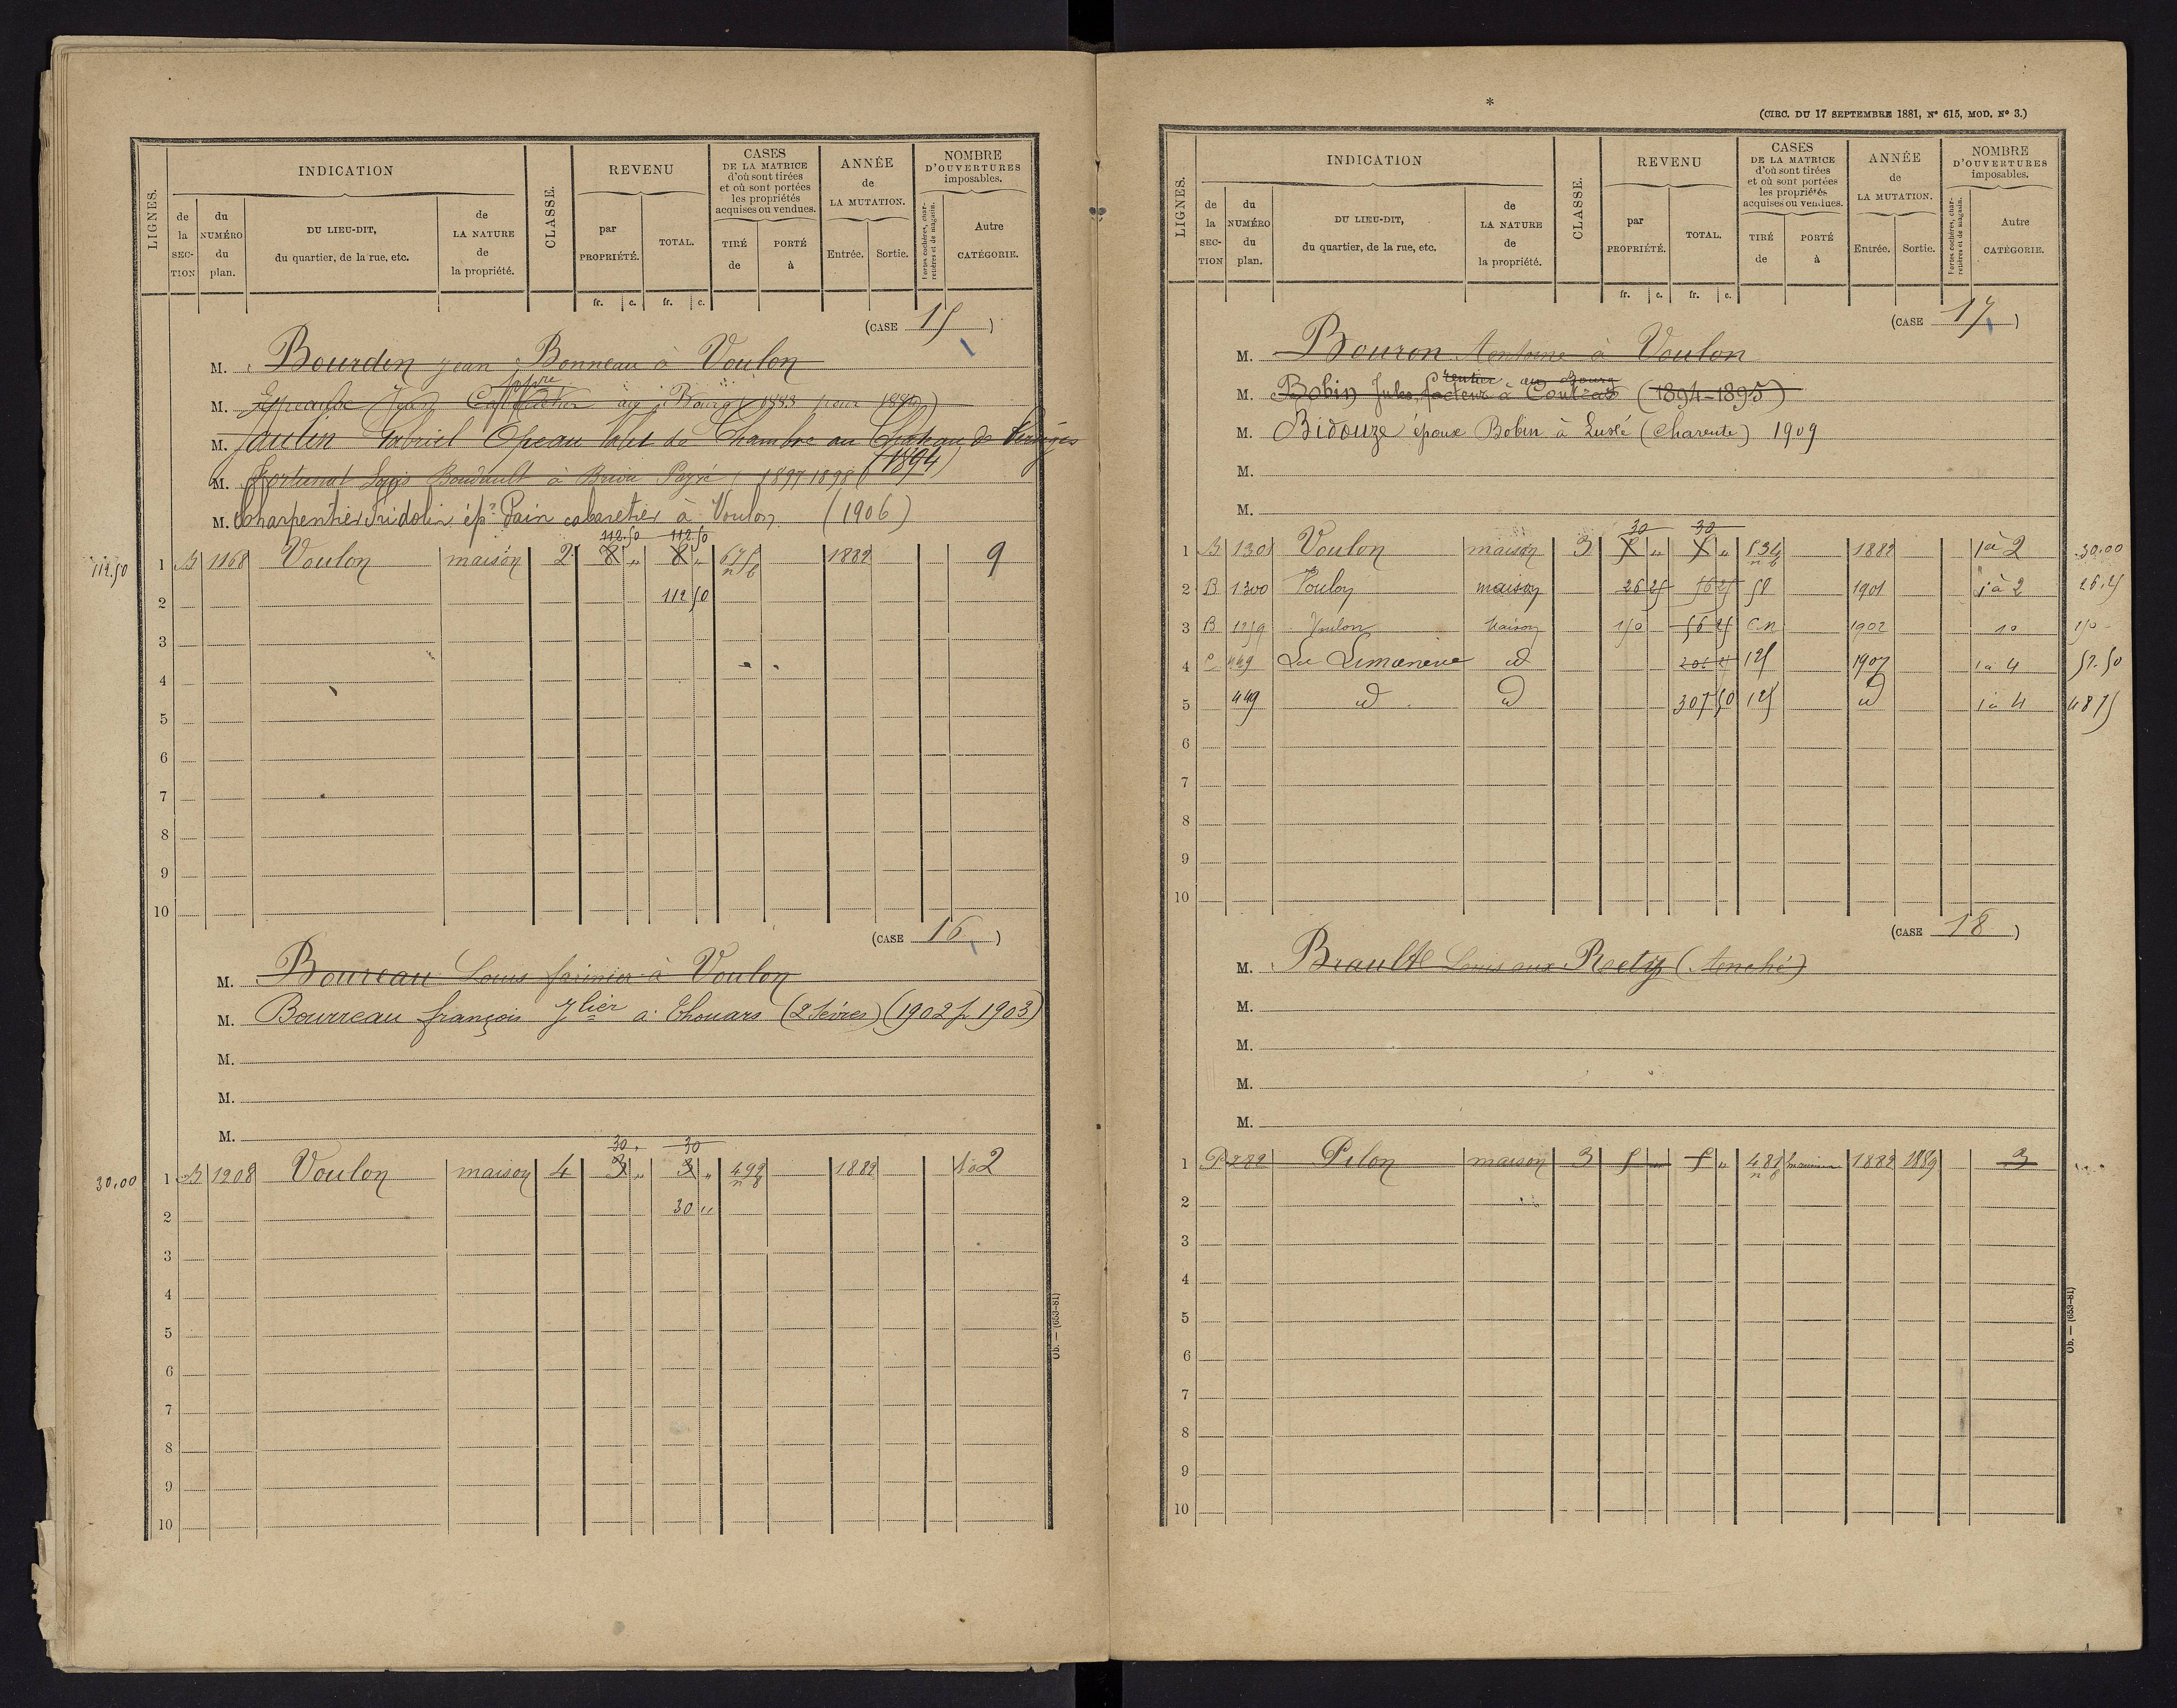 LIGNES.
INDICATION
CLASSE.
REVENU
CASES DE LA MATRICE d'où sont tirées et où sont portées les propriétés acquises ou vendues.
ANNÉE de LA MUTATION.
NOMBRE D'OUVERTURES imposables.
de la SECTION
du NUMÉRO du plan.
DU LIEU-DIT, du quartier, de la rue, etc.
de LA NATURE de la propriété.
par PROPRIÉTÉ.
TOTAL.
TIRÉ de
PORTÉ à
Entrée.
Sortie.
Portes cochères, charretières et de magasin.
Autre CATÉGORIE.
fr. c. fr. c.
(CASE 15)
M. Bourdin Jean Bonneau à Voulon
M. au Bourg 1883 pour
M. Gabriel Epeau Valet de Chambre au Château de
(1894)
M. Louis Boudault à 1897 1898
M. Charpentier Fridolin ép. Pain cabaretier à Voulon (1906)
112.50 112.50
112.50 1 B 1168 Voulon maison 2 8 " 8 " 675 n b 1882 9
2 112 50
3
4
5
6
7
8
9
10
(CASE 16)
M. Boureau Louis farinier à Voulon
M. Bourreau françois à Thouars (2 Sèvres) (1902 p. 1903)
M.
M.
M.
30. 30
30.00 1 B 1208 Voulon maison 4 3 " 3 " 499 n b 1882 1 à 2
2 30 "
3
4
5
6
7
8
9
10
Ob. — (653-81)
*
(CIRC. DU 17 SEPTEMBRE 1881, N° 615, MOD. N° 3.)
LIGNES.
INDICATION
CLASSE.
REVENU
CASES DE LA MATRICE d'où sont tirées et où sont portées les propriétés acquises ou vendues.
ANNÉE de LA MUTATION.
NOMBRE D'OUVERTURES imposables.
de la SECTION
du NUMÉRO du plan.
DU LIEU-DIT, du quartier, de la rue, etc.
de LA NATURE de la propriété.
par PROPRIÉTÉ.
TOTAL.
TIRÉ de
PORTÉ à
Entrée.
Sortie.
Portes cochères, charretières et de magasin.
Autre CATÉGORIE.
fr. c. fr. c.
(CASE 17)
M. Bouron Antoine à Voulon
rentier au Bourg
M. Bobin Jules, facteur à (1894-1895)
M. Bidouze épouse Bobin à (Charente) 1909
M.
M.
30 30
1 B 1301 Voulon maison 3 5 " 5 " 534 n b 1882 1 à 2 30.00
2 B 1300 Voulon maison 26 25 56 25 50 1901 1 à 2 26.25
3 B 1259 Voulon Maison 150 56 25 C.N 1902 10 150
4 C 449 id 125 1907 1 à 4 52.50
5 449 id id 307 50 125 id 1 à 4 48 75
6
7
8
9
10
(CASE 18)
M. Brault Louis aux (Anché)
M.
M.
M.
M.
1 P 282 Pilon maison 3 5 " 5 " 481 n b 1882 1889 3
2
3
4
5
6
7
8
9
10
Ob. — (653-81)